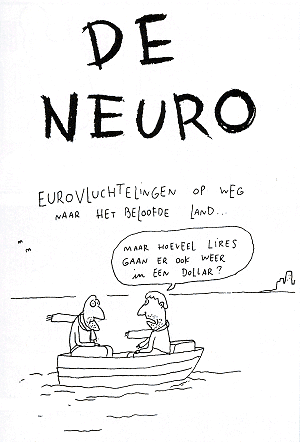 DE
NEURO
EUROVLUCHTELINGEN OP WEG
NAAR HET BELOOFDE LAND...
MAAR HOEVEEL LIRES
GAAN ER OOK WEER
in EEN DOLLAR?